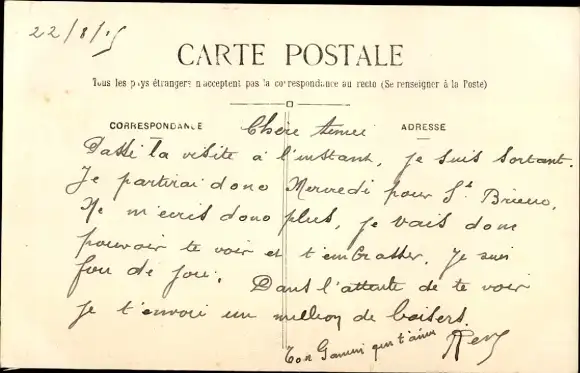 22/8/15
CARTE POSTALE
Tous les pays étrangers n'acceptent pas la correspondance au recto (Se renseigner à la Poste)
CORRESPONDANCE
ADRESSE
Chère
Passé la visite à l'instant, je suis sortant.
Je partirai donc Mercredi pour St Brieuc,
Ne m'écris donc plus, je vais donc
pouvoir te voir et t'embrasser. Je suis
fou de joie. Dans l'attente de te voir
je t'envoie un million de baisers.
Ton qui t'aime